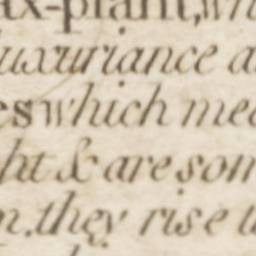 ax-plant, wh
luxuriance a
es which mea
ht & are som
n, they rise u